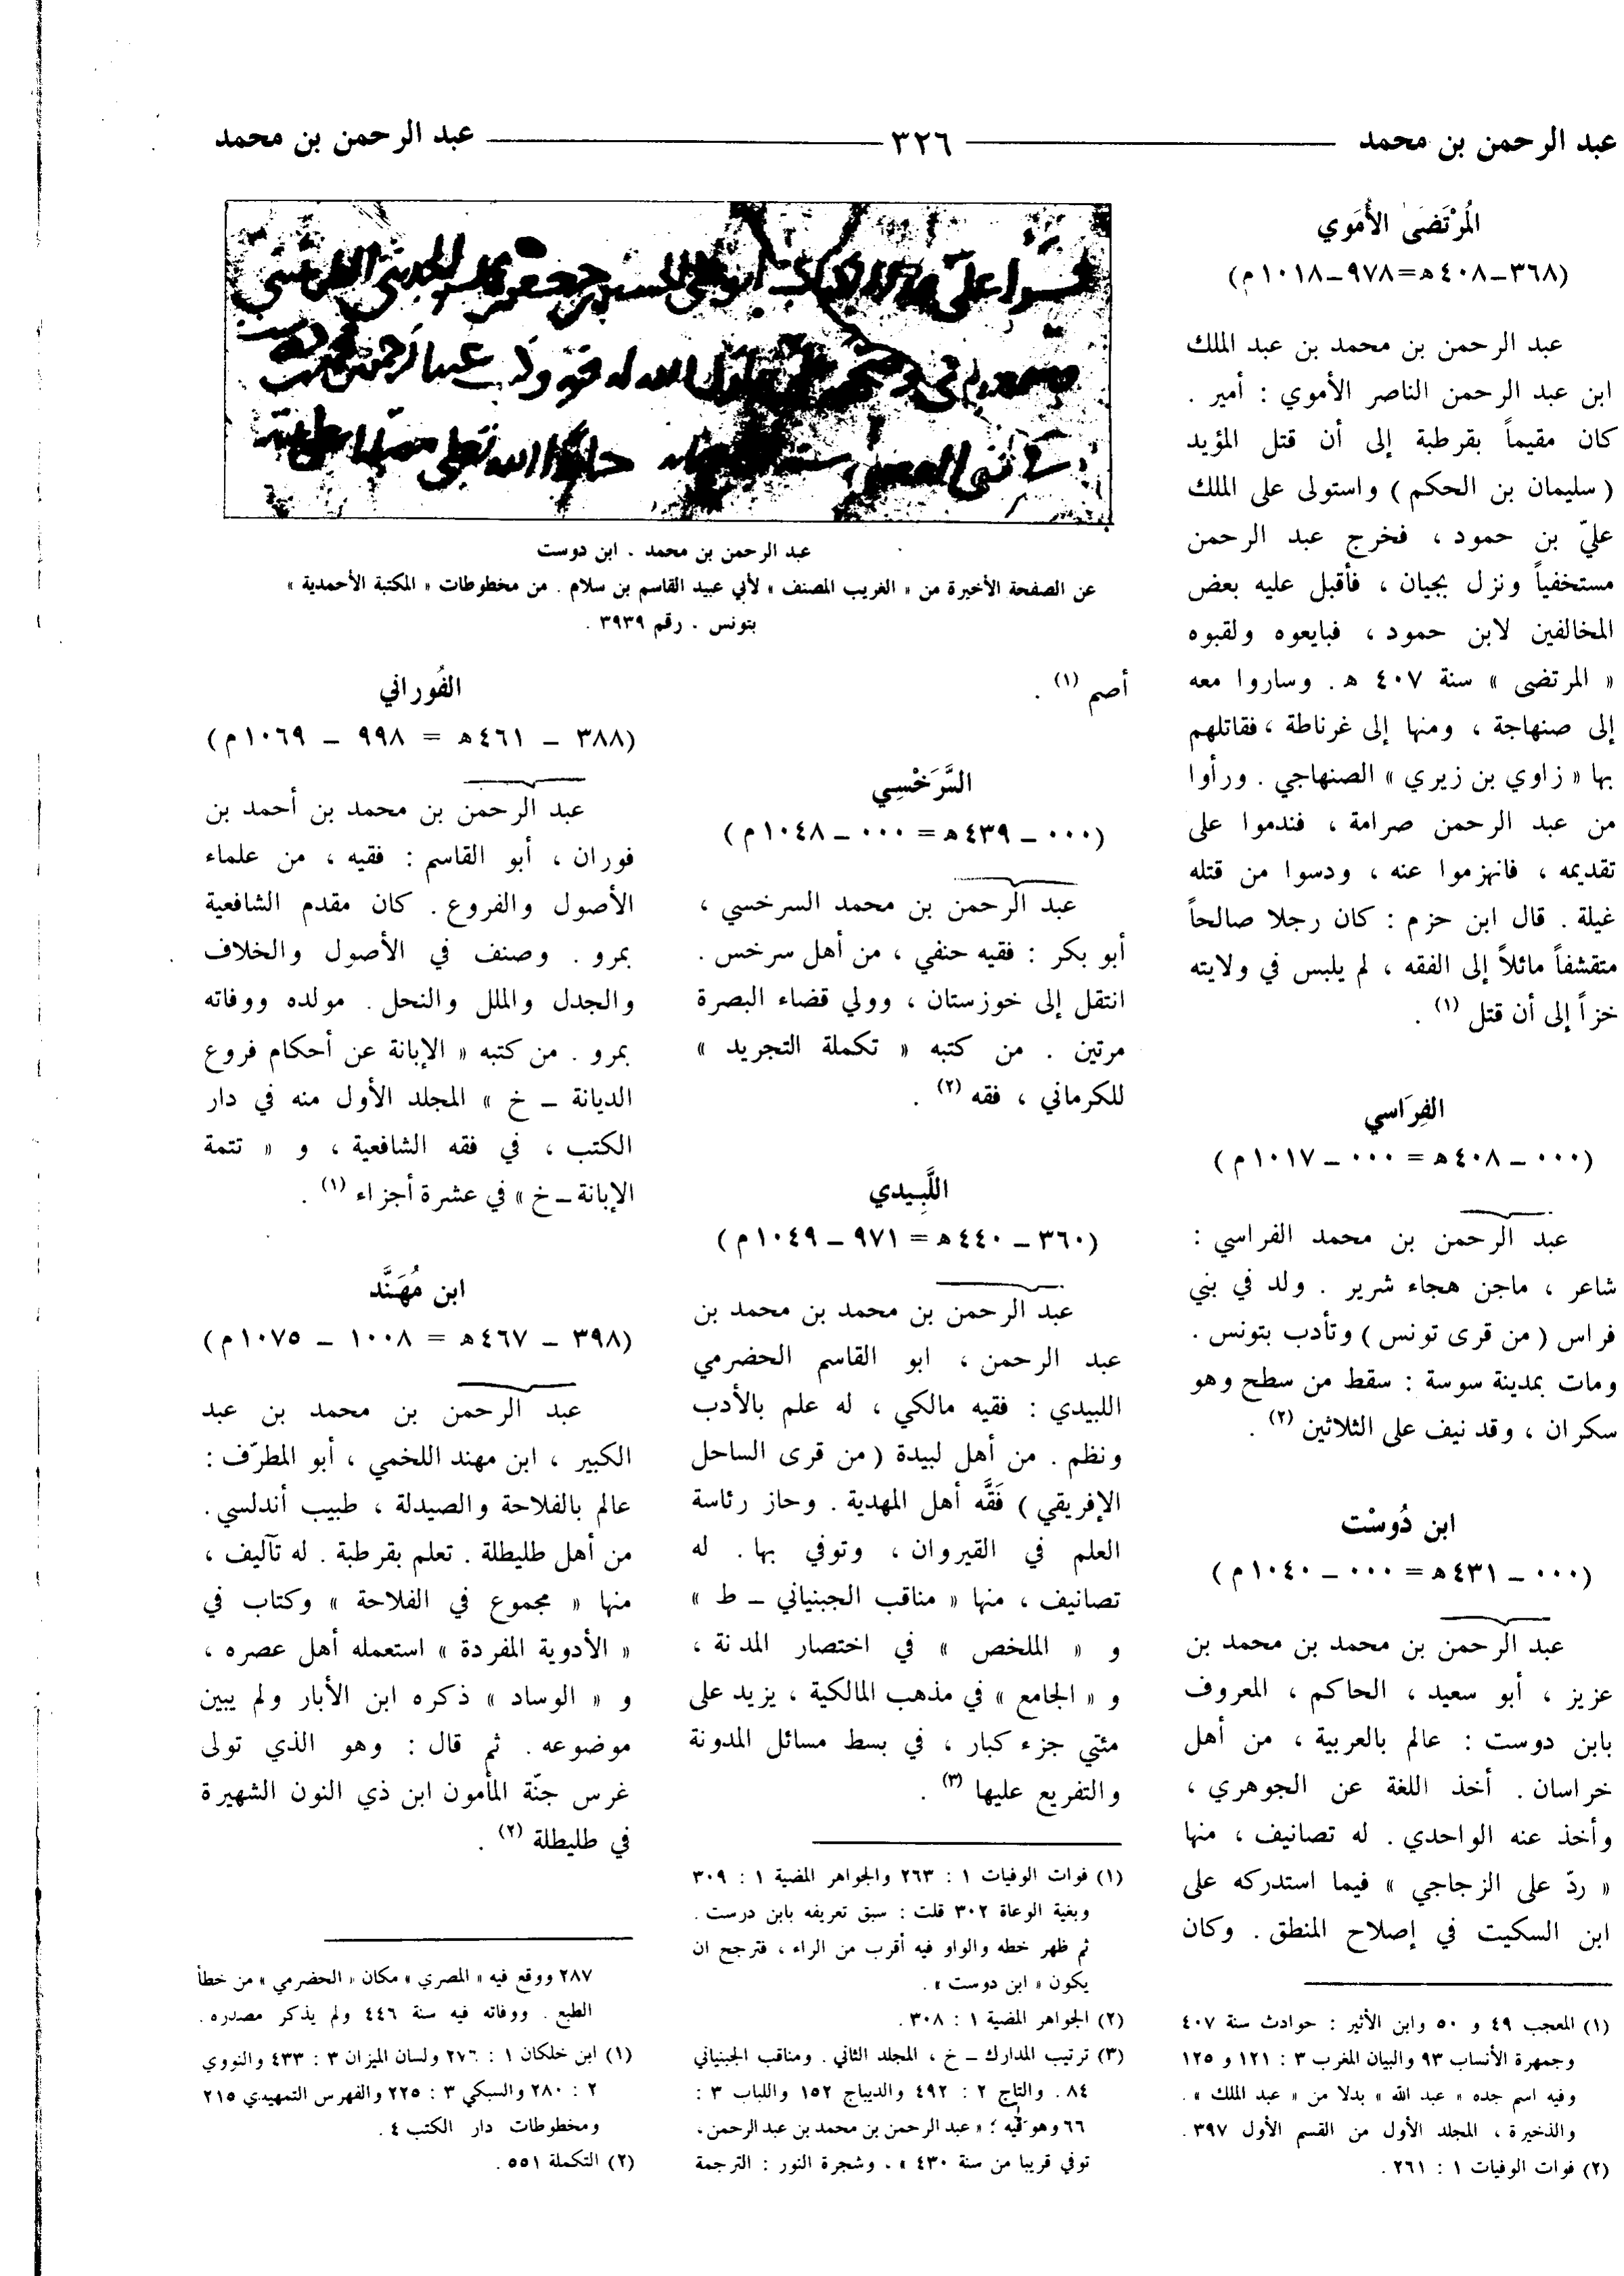 عبد الرحمن بن محمد ——— ٣٢٦ ——— عبد الرحمن بن محمد
المُرْتَضَى الأُمَوي
(٣٦٨–٤٠٨ه=٩٧٨–١٠١٨م)
عبد الرحمن بن محمد بن عبد الملك
ابن عبد الرحمن الناصر الأموي : أمير .
كان مقيماً بقرطبة إلى أن قتل المؤيد
( سليمان بن الحكم ) واستولى على الملك
عليّ بن حمود ، فخرج عبد الرحمن
مستخفياً ونزل بجيان ، فأقبل عليه بعض
المخالفين لابن حمود ، فبايعوه ولقبوه
« المرتضى » سنة ٤٠٧ ه. وساروا معه
إلى صنهاجة ، ومنها إلى غرناطة ، فقاتلهم
بها « زاوي بن زيري » الصنهاجي . ورأوا
من عبد الرحمن صرامة ، فندموا على
تقديمه ، فانهزموا عنه ، ودسوا من قتله
غيلة . قال ابن حزم : كان رجلا صالحاً
متقشفاً مائلاً إلى الفقه ، لم يلبس في ولايته
خزاً إلى أن قتل (١) .
الفِرَاسي
(٠٠٠ – ٤٠٨ه = ٠٠٠ – ١٠١٧م)
عبد الرحمن بن محمد الفراسي :
شاعر ، ماجن هجاء شرير . ولد في بني
فراس ( من قرى تونس ) وتأدب بتونس .
ومات بمدينة سوسة : سقط من سطح وهو
سكران ، وقد نيف على الثلاثين (٢) .
ابن دُوسْت
(٠٠٠ – ٤٣١ه = ٠٠٠ – ١٠٤٠م)
عبد الرحمن بن محمد بن محمد بن
عزيز ، أبو سعيد ، الحاكم ، المعروف
بابن دوست : عالم بالعربية ، من أهل
خراسان . أخذ اللغة عن الجوهري ،
وأخذ عنه الواحدي . له تصانيف ، منها
« ردّ على الزجاجي » فيما استدركه على
ابن السكيت في إصلاح المنطق . وكان
(١) المعجب ٤٩ و ٥٠ وابن الأثير : حوادث سنة ٤٠٧
وجمهرة الأنساب ٩٣ والبيان المغرب ٣ : ١٢١ و ١٢٥
وفيه اسم جده « عبد الله » بدلا من « عبد الملك » .
والذخيرة ، المجلد الأول من القسم الأول ٣٩٧ .
(٢) فوات الوفيات ١ : ٢٦١ .
عبد الرحمن بن محمد . ابن دوست
عن الصفحة الأخيرة من « الغريب المصنف » لأبي عبيد القاسم بن سلام . من مخطوطات « المكتبة الأحمدية »
بتونس . رقم ٣٩٣٩ .
أصم (١) .
السَّرَخْسِي
(٠٠٠ – ٤٣٩ه = ٠٠٠ – ١٠٤٨م)
عبد الرحمن بن محمد السرخسي ،
أبو بكر : فقيه حنفي ، من أهل سرخس .
انتقل إلى خوزستان ، وولي قضاء البصرة
مرتين . من كتبه « تكملة التجريد »
للكرماني ، فقه (٢) .
اللَّبِيدي
(٣٦٠ – ٤٤٠ه = ٩٧١ – ١٠٤٩م)
عبد الرحمن بن محمد بن محمد بن
عبد الرحمن ، ابو القاسم الحضرمي
اللبيدي : فقيه مالكي ، له علم بالأدب
ونظم . من أهل لبيدة ( من قرى الساحل
الإفريقي ) فَقَّه أهل المهدية . وحاز رئاسة
العلم في القيروان ، وتوفي بها . له
تصانيف ، منها « مناقب الجبنياني – ط »
و « الملخص » في اختصار المدنة ،
و « الجامع » في مذهب المالكية ، يزيد على
مئتي جزء كبار ، في بسط مسائل المدونة
والتفريع عليها (٣) .
(١) فوات الوفيات ١ : ٢٦٣ والجواهر المضية ١ : ٣٠٩
وبغية الوعاة ٣٠٢ قلت : سبق تعريفه بابن درست .
ثم ظهر خطه والواو فيه أقرب من الراء ، فترجح ان
يكون « ابن دوست » .
(٢) الجواهر المضية ١ : ٣٠٨ .
(٣) ترتيب المدارك – خ ، المجلد الثاني . ومناقب الجبنياني
٨٤ . والتاج ٢ : ٤٩٢ والديباج ١٥٢ واللباب ٣ :
٦٦ وهو فيه ؛ « عبد الرحمن بن محمد بن عبد الرحمن ،
توفي قريبا من سنة ٤٣٠ » . وشجرة النور : الترجمة
الفُوراني
(٣٨٨ – ٤٦١ه = ٩٩٨ – ١٠٦٩م)
عبد الرحمن بن محمد بن أحمد بن
فوران ، أبو القاسم : فقيه ، من علماء
الأصول والفروع . كان مقدم الشافعية
بمرو . وصنف في الأصول والخلاف
والجدل والملل والنحل . مولده ووفاته
بمرو . من كتبه « الإبانة عن أحكام فروع
الديانة – خ » المجلد الأول منه في دار
الكتب ، في فقه الشافعية ، و « تتمة
الإبانة – خ » في عشرة أجزاء (١) .
ابن مُهَنَّد
(٣٩٨ – ٤٦٧ه = ١٠٠٨ – ١٠٧٥م)
عبد الرحمن بن محمد بن عبد
الكبير ، ابن مهند اللخمي ، أبو المطرّف :
عالم بالفلاحة والصيدلة ، طبيب أندلسي .
من أهل طليطلة . تعلم بقرطبة . له تآليف ،
منها « مجموع في الفلاحة » وكتاب في
« الأدوية المفردة » استعمله أهل عصره ،
و « الوساد » ذكره ابن الأبار ولم يبين
موضوعه . ثم قال : وهو الذي تولى
غرس جنّة المأمون ابن ذي النون الشهيرة
في طليطلة (٢) .
٢٨٧ ووقع فيه « المصري » مكان « الحضرمي » من خطأ
الطبع . ووفاته فيه سنة ٤٤٦ ولم يذكر مصدره .
(١) ابن خلكان ١ : ٢٧٦ ولسان الميزان ٣ : ٤٣٣ والنووي
٢ : ٢٨٠ والسبكي ٣ : ٢٢٥ والفهرس التمهيدي ٢١٥
ومخطوطات دار الكتب ٤ .
(٢) التكملة ٥٥١ .